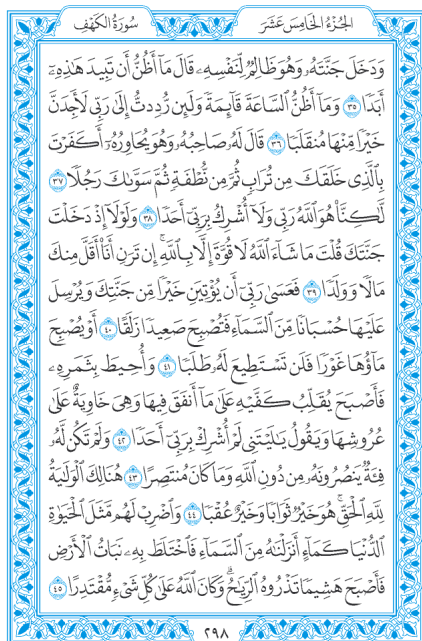 سُورَةُ الكَهْفِ
الجُزْءُ الخَامِسَ عَشَرَ
وَدَخَلَ جَنَّتَهُۥ وَهُوَ ظَالِمٌ لِّنَفْسِهِۦ قَالَ مَآ أَظُنُّ أَن تَبِيدَ هَٰذِهِۦٓ
أَبَدًا ٣٥ وَمَآ أَظُنُّ ٱلسَّاعَةَ قَآئِمَةً وَلَئِن رُّدِدتُّ إِلَىٰ رَبِّى لَأَجِدَنَّ
خَيْرًا مِّنْهَا مُنقَلَبًا ٣٦ قَالَ لَهُۥ صَاحِبُهُۥ وَهُوَ يُحَاوِرُهُۥٓ أَكَفَرْتَ
بِٱلَّذِى خَلَقَكَ مِن تُرَابٍ ثُمَّ مِن نُّطْفَةٍ ثُمَّ سَوَّىٰكَ رَجُلًا ٣٧
لَّٰكِنَّا۠ هُوَ ٱللَّهُ رَبِّى وَلَآ أُشْرِكُ بِرَبِّىٓ أَحَدًا ٣٨ وَلَوْلَآ إِذْ دَخَلْتَ
جَنَّتَكَ قُلْتَ مَا شَآءَ ٱللَّهُ لَا قُوَّةَ إِلَّا بِٱللَّهِ ۚ إِن تَرَنِ أَنَا۠ أَقَلَّ مِنكَ
مَالًا وَوَلَدًا ٣٩ فَعَسَىٰ رَبِّىٓ أَن يُؤْتِيَنِ خَيْرًا مِّن جَنَّتِكَ وَيُرْسِلَ
عَلَيْهَا حُسْبَانًا مِّنَ ٱلسَّمَآءِ فَتُصْبِحَ صَعِيدًا زَلَقًا ٤٠ أَوْ يُصْبِحَ
مَآؤُهَا غَوْرًا فَلَن تَسْتَطِيعَ لَهُۥ طَلَبًا ٤١ وَأُحِيطَ بِثَمَرِهِۦ
فَأَصْبَحَ يُقَلِّبُ كَفَّيْهِ عَلَىٰ مَآ أَنفَقَ فِيهَا وَهِىَ خَاوِيَةٌ عَلَىٰ
عُرُوشِهَا وَيَقُولُ يَٰلَيْتَنِى لَمْ أُشْرِكْ بِرَبِّىٓ أَحَدًا ٤٢ وَلَمْ تَكُن لَّهُۥ
فِئَةٌ يَنصُرُونَهُۥ مِن دُونِ ٱللَّهِ وَمَا كَانَ مُنتَصِرًا ٤٣ هُنَالِكَ ٱلْوَلَٰيَةُ
لِلَّهِ ٱلْحَقِّ ۚ هُوَ خَيْرٌ ثَوَابًا وَخَيْرٌ عُقْبًا ٤٤ وَٱضْرِبْ لَهُم مَّثَلَ ٱلْحَيَوٰةِ
ٱلدُّنْيَا كَمَآءٍ أَنزَلْنَٰهُ مِنَ ٱلسَّمَآءِ فَٱخْتَلَطَ بِهِۦ نَبَاتُ ٱلْأَرْضِ
فَأَصْبَحَ هَشِيمًا تَذْرُوهُ ٱلرِّيَٰحُ ۗ وَكَانَ ٱللَّهُ عَلَىٰ كُلِّ شَىْءٍ مُّقْتَدِرًا ٤٥
٢٩٨